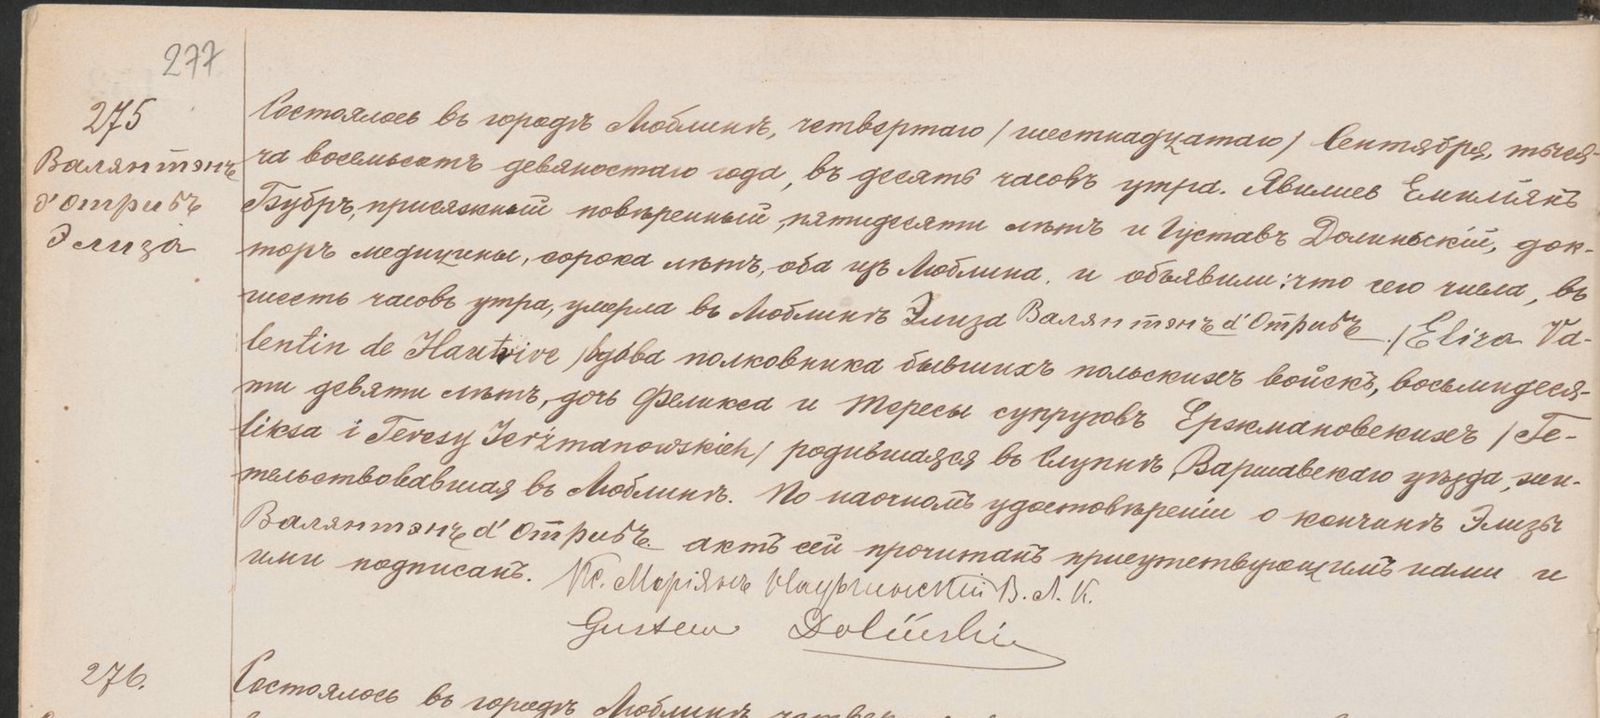 277
275
Валянтэнъ
д'Отривъ
Элиза
Состоялось въ городѣ Люблинѣ, четвертаго /шестнадцатаго/ Сентября, тыся-
ча восемьсотъ девяностаго года, въ десять часовъ утра. Явились Емиліянъ
Бубръ, присяжный повѣренный, пятидесяти лѣтъ и Густавъ Долиньскій, док-
торъ медицины, сорока лѣтъ, оба изъ Люблина, и объявили: что сего числа, въ
шесть часовъ утра, умерла въ Люблинѣ Элиза Валянтэнъ д'Отривъ /Eliza Va-
lentin de Hautrive/ вдова полковника бывшихъ польскихъ войскъ, восьмидеся-
ти девяти лѣтъ, дочь Феликса и Тересы супруговъ Ержмановскихъ /Fe-
liksa i Teresy Jerżmanowskich/ родившаяся въ Слупнѣ, Варшавскаго уѣзда, жи-
тельствовавшая въ Люблинѣ. По наочномъ удостовѣреніи о кончинѣ Элизы
Валянтэнъ д'Отривъ актъ сей прочитанъ присутствующимъ нами и
ими подписанъ. Кс. Маріянъ В. Л. К.
Gustaw Doliński
276.
Состоялось въ городѣ Люблинѣ